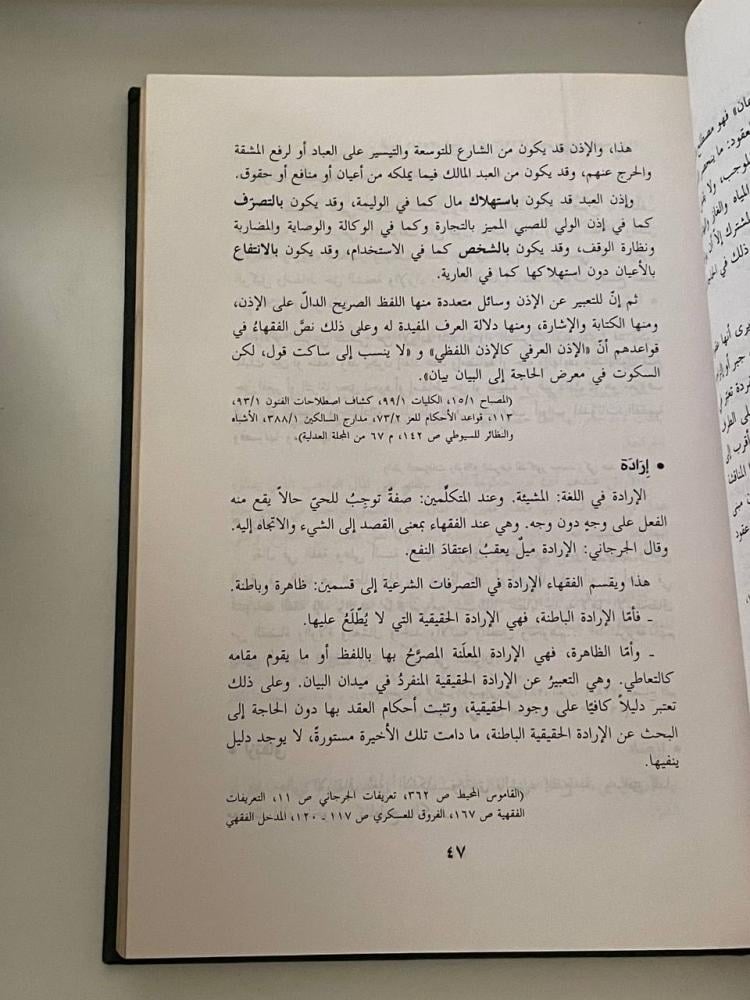 هذا، والإذن قد يكون من الشارع للتوسعة والتيسير على العباد أو لرفع المشقة
والحرج عنهم، وقد يكون من العبد المالك فيما يملكه من أعيان أو منافع أو حقوق.
وإذن العبد قد يكون باستهلاك مال كما في الوليمة، وقد يكون بالتصرّف
كما في إذن الولي للصبي المميز بالتجارة وكما في الوكالة والوصاية والمضاربة
ونظارة الوقف، وقد يكون بالشخص كما في الاستخدام، وقد يكون بالانتفاع
بالأعيان دون استهلاكها كما في العارية.
ثم إنّ للتعبير عن الإذن وسائل متعددة منها اللفظ الصريح الدالّ على الإذن،
ومنها الكتابة والإشارة، ومنها دلالة العرف المفيدة له وعلى ذلك نصَّ الفقهاءُ في
قواعدهم أنّ «الإذن العرفي كالإذن اللفظي» و «لا ينسب إلى ساكت قول، لكن
السكوت في معرض الحاجة إلى البيان بيان».
(المصباح ١/١٥، الكليات ١/٩٩، كشاف اصطلاحات الفنون ١/٩٣،
١١٣، قواعد الأحكام للعز ٢/٧٣، مدارج السالكين ١/٣٨٨، الأشباه
والنظائر للسيوطي ص ١٤٢، م ٦٧ من المجلة العدلية).
• إرَادَة
الإرادة في اللغة: المشيئة. وعند المتكلِّمين: صفةٌ توجِبُ للحيّ حالاً يقع منه
الفعل على وجهٍ دون وجه. وهي عند الفقهاء بمعنى القصد إلى الشيء والاتجاه إليه.
وقال الجرجاني: الإرادة ميلٌ يعقبُ اعتقادَ النفع.
هذا ويقسم الفقهاء الإرادة في التصرفات الشرعية إلى قسمين: ظاهرة وباطنة.
ـ فأمّا الإرادة الباطنة، فهي الإرادة الحقيقية التي لا يُطَّلَعُ عليها.
ـ وأمّا الظاهرة، فهي الإرادة المعلَنة المصرَّحُ بها باللفظ أو ما يقوم مقامه
كالتعاطي. وهي التعبيرُ عن الإرادة الحقيقية المنفردُ في ميدان البيان. وعلى ذلك
تعتبر دليلاً كافيًا على وجود الحقيقية، وتثبت أحكام العقد بها دون الحاجة إلى
البحث عن الإرادة الحقيقية الباطنة، ما دامت تلك الأخيرة مستورةً، لا يوجد دليل
ينفيها.
(القاموس المحيط ص ٣٦٢، تعريفات الجرجاني ص ١١، التعريفات
الفقهية ص ١٦٧، الفروق للعسكري ص ١١٧ ـ ١٢٠، المدخل الفقهي
٤٧